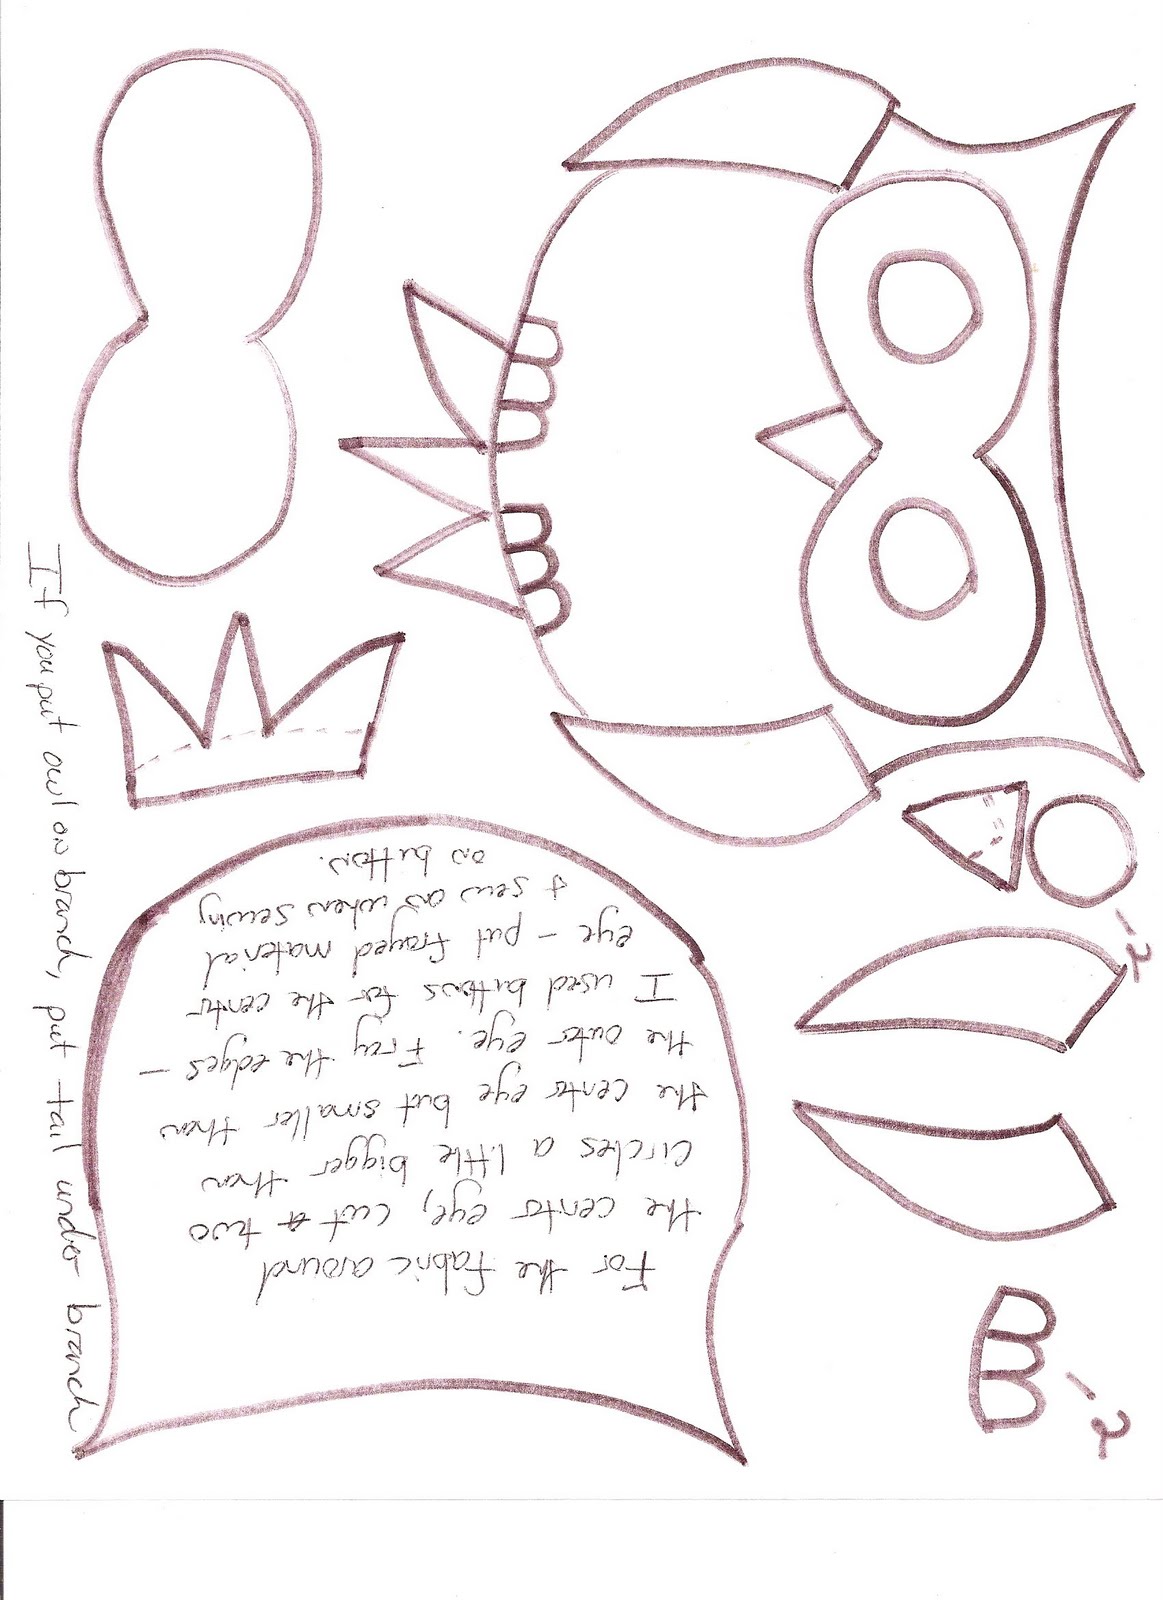 For the fabric around
the center eye, cut two
circles a little bigger than
the center eye but smaller then
the outer eye. Fray the edges -
I used buttons for the center
eye - put frayed material
& sew on when sewing
on button.
If you put owl on branch, put tail under branch
- 2
- 2